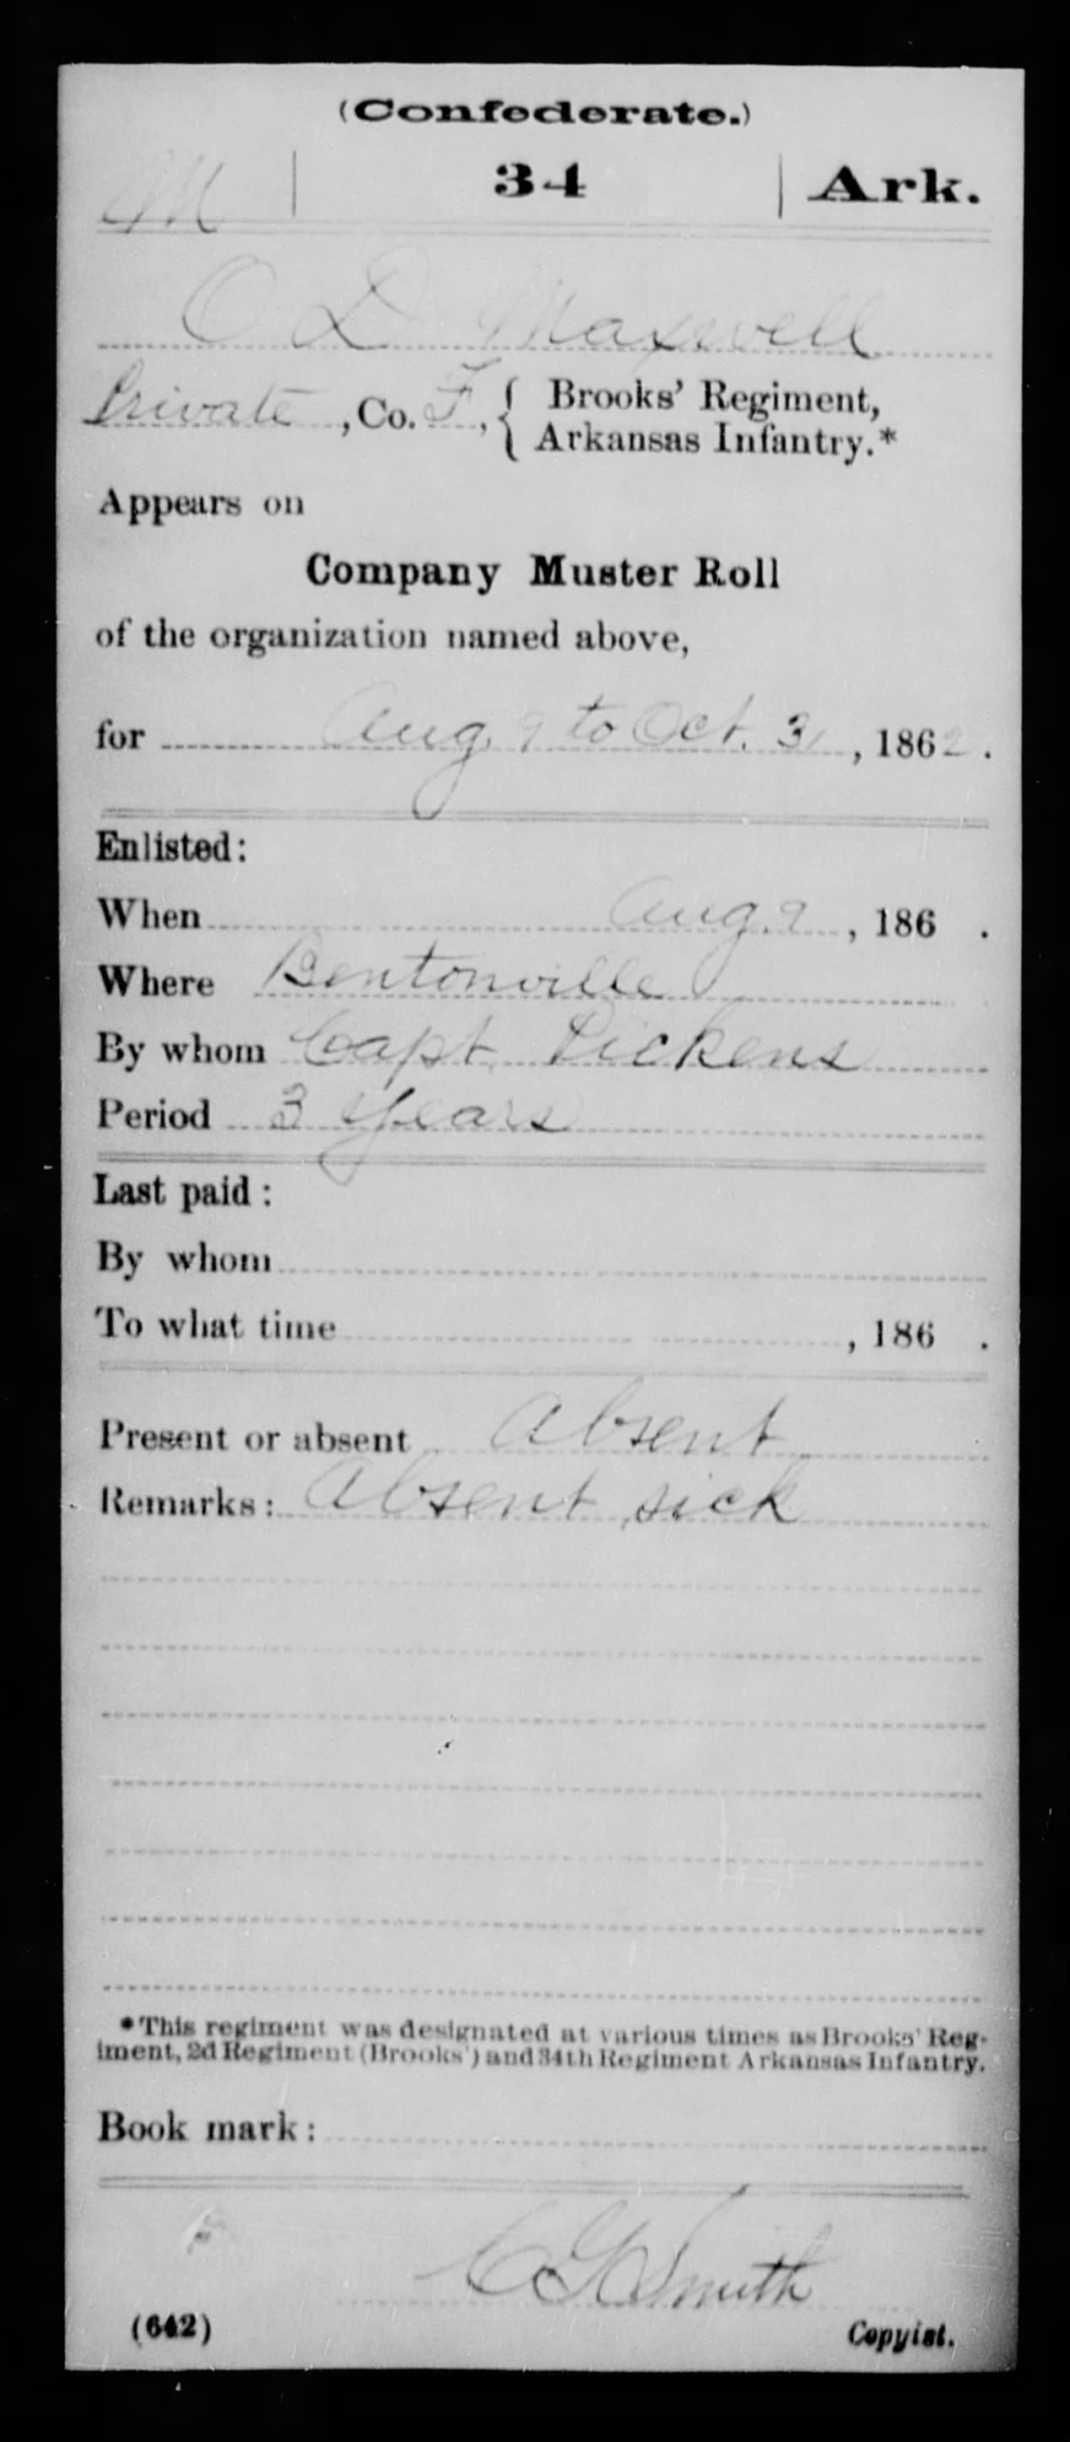 (Confederate.)
M | 34 | Ark.
O D Maxwell
Private, Co. F, { Brooks' Regiment,
Arkansas Infantry.*
Appears on
Company Muster Roll
of the organization named above,
for Aug. 9 to Oct. 31, 1862.
Enlisted:
When Aug. 9, 186 .
Where Bentonville
By whom Capt. Pickens
Period 3 years
Last paid:
By whom
To what time , 186 .
Present or absent Absent
Remarks: Absent sick
*This regiment was designated at various times as Brooks' Reg-
iment, 2d Regiment (Brooks') and 34th Regiment Arkansas Infantry.
Book mark:
Smith
(642) Copyist.